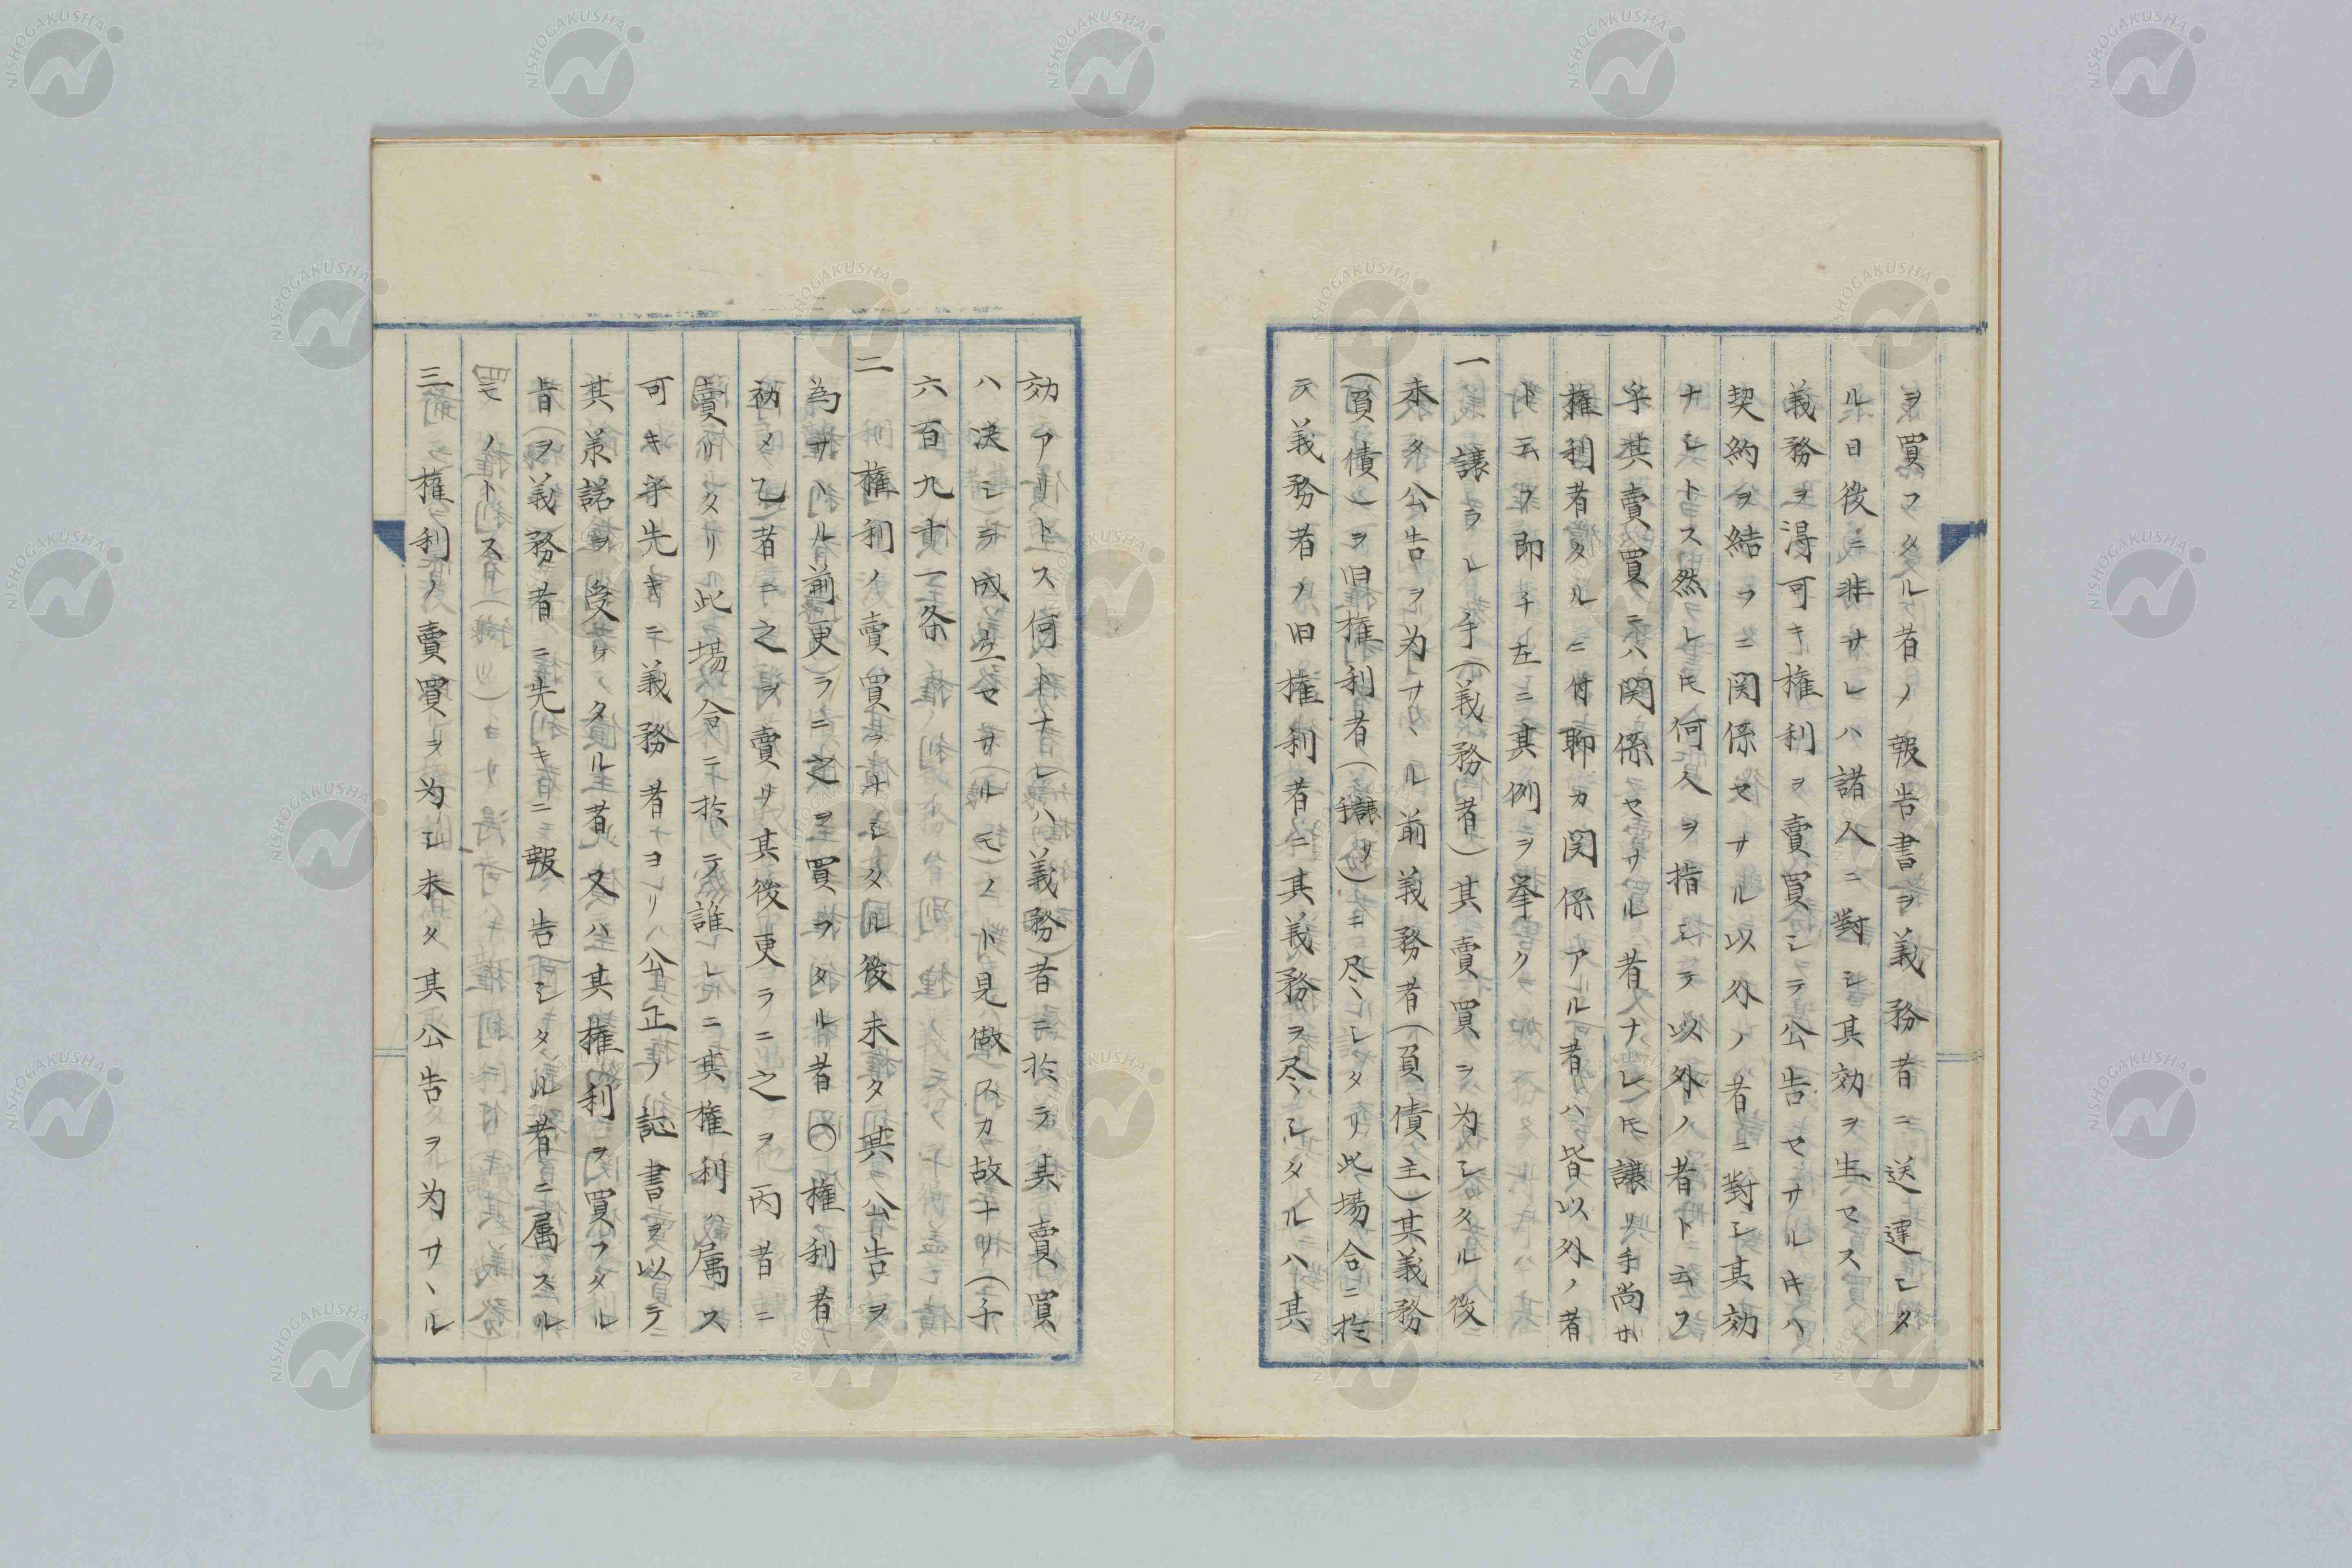 ヲ買フタル者ノ報告書ヲ義務者ニ送達シタ
ル日後ニ非サレハ諸人ニ對シ其効ヲ生セス
義務ヲ得可キ権利ヲ賣買シテ公告セサルキハ
契約ヲ結フニ関係セサル以外ノ者ニ對シ其効
ナシトス然レ𪜈何人ヲ指シテ以外ノ者ト云フ
乎其賣買ニハ関係セサル者ナレ𪜈譲リ手尚ホ
権利者タルニ付聊カ関係アル者ハ皆以外ノ者
ト云フ即チ左ニ其例ヲ挙ク
一 譲ラレ手(義務者)其賣買ヲ為シタル後
未タ公告ヲ為サヽル前義務者(負債主)其義務
(負債)ヲ旧権利者(譲リ手)ニ尽シタリ此場合ニ於
テ義務者ノ旧権利者ニ其義務ヲ尽シタルハ其
効アリトス何トナレハ義務者ニ於テ其賣買
ハ決シテ成立セサルモノト見做スカ故ナリ(千
六百九十一条
二 権利ノ賣買ヲナシタル後未タ其公告ヲ
為サヽル前更ラニ之ヲ買フタル者○権利者
初メ乙者ニ之ヲ賣リ其後更ラニ之ヲ丙者ニ
賣リタリ此場合ニ於テ誰レニ其権利ハ属ス
可キ乎先キニ義務者ヨリ公正ノ証書ヲ以テ
其承諾ヲ受ケタル者又ハ其権利ヲ買フタル
旨ヲ義務者ニ先キニ報告シタル者ニ属スル
モノトス
三 権利ノ賣買ヲ為シ未タ其公告ヲ為サヽル